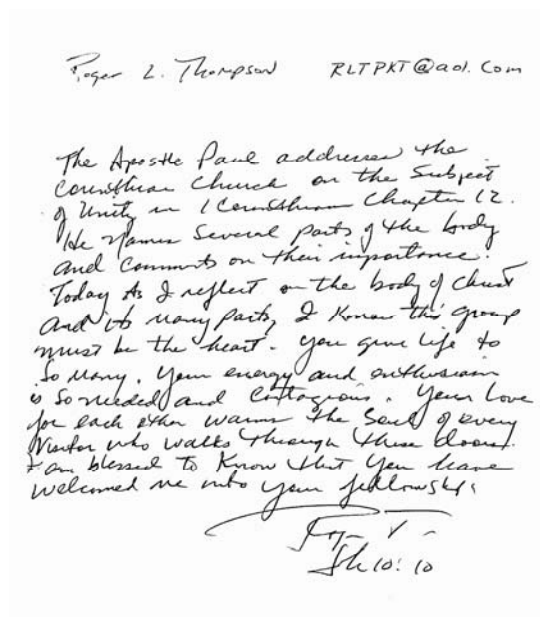 Roger L. Thompson RLTPKT@aol.com
The Apostle Paul addresses the
Corinthian Church on the Subject
of Unity in 1 Corinthians Chapter 12.
He Names Several parts of the body
and Comments on their importance.
Today As I reflect on the body of Christ
And its many parts, I Know this group
must be the heart. You give life to
So Many. Your energy and enthusiasm
is So needed and Contagious. Your Love
for each other warms the Soul of every
Visitor who walks through these doors.
I am blessed to Know that You have
welcomed me into your fellowship
Roger T
Jh 10:10